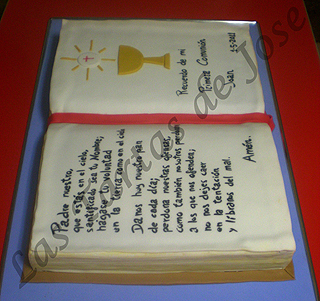 Recuerdo de mi
Primera Comunión
Juan
1-5-2011
Padre nuestro,
que estás en el cielo,
santificado sea tu Nombre;
hágase tu voluntad
en la tierra como en el cielo
Danos hoy nuestro pan
de cada día;
perdona nuestras ofensas,
como también nosotros perdonamos
a los que nos ofenden;
no nos dejes caer
en la tentación
y líbranos del mal.
Amén.
de Jose